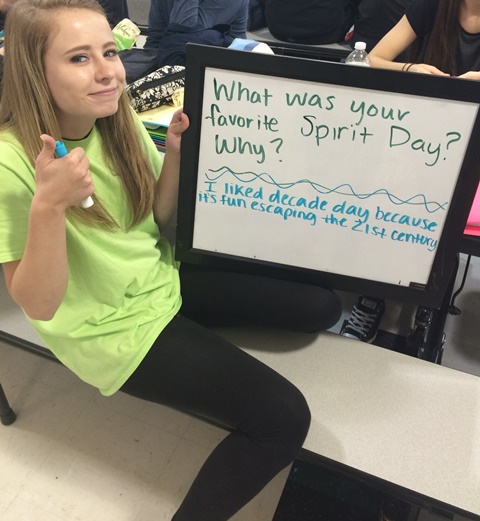 What was your
favorite Spirit Day?
Why?
I liked decade day because
it's fun escaping the 21st century